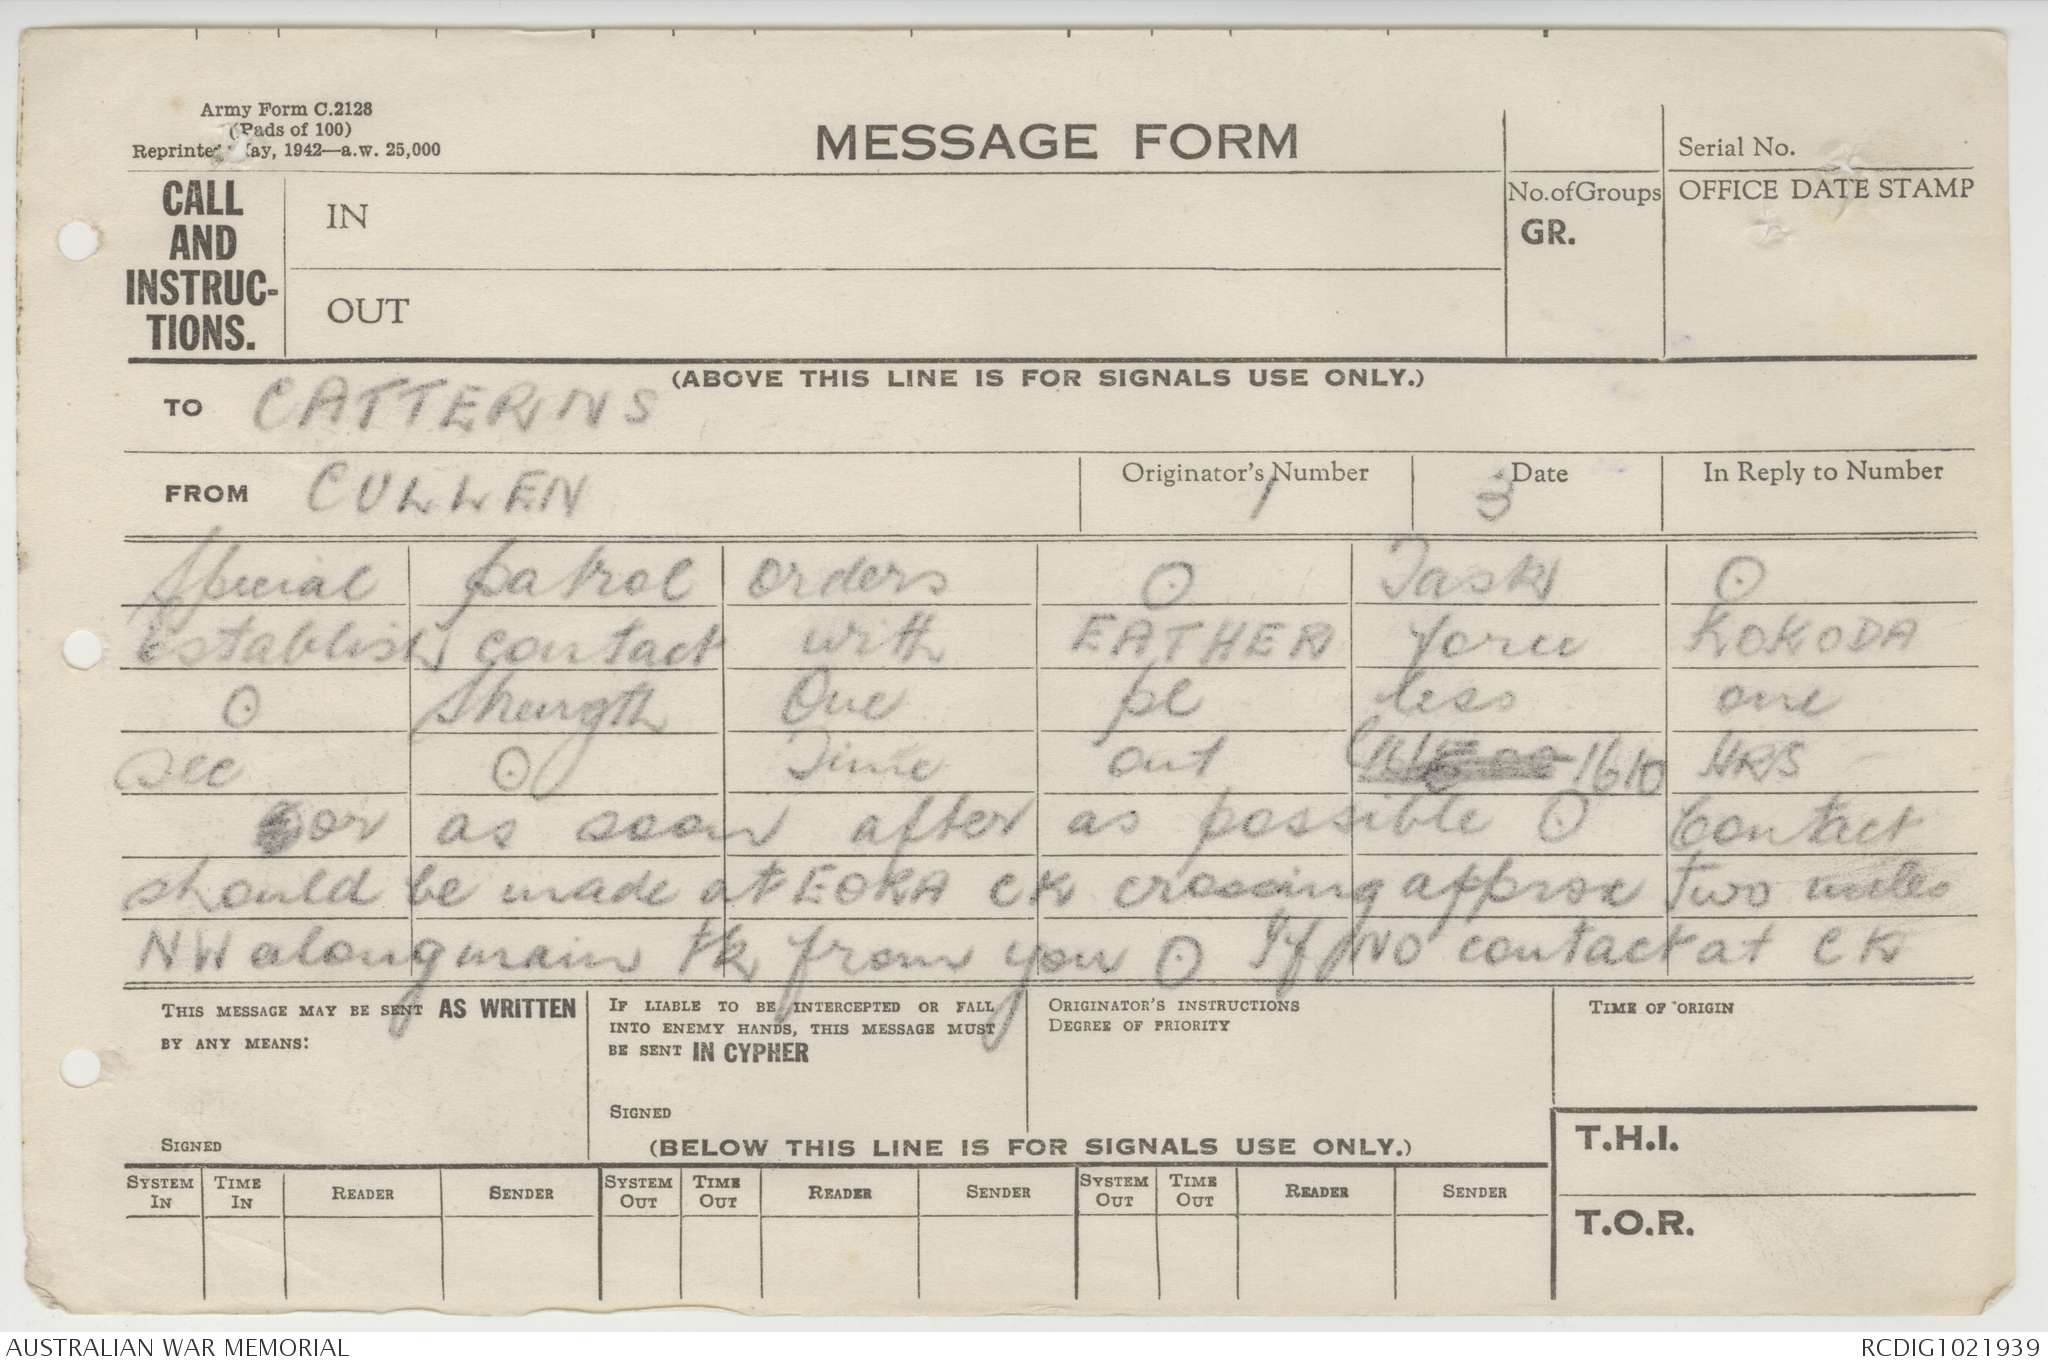 Army Form C.2128
(Pads of 100)
Reprinted May, 1942—a.w. 25,000
MESSAGE FORM
Serial No.
CALL AND INSTRUC-TIONS.
IN
OUT
No. of Groups
GR.
OFFICE DATE STAMP
(ABOVE THIS LINE IS FOR SIGNALS USE ONLY.)
TO CATTERNS
FROM CULLEN
Originator's Number 1
Date 3
In Reply to Number
Special patrol orders ⊙ Task ⊙
establish contact with EATHER force KOKODA
⊙ Strength One pl less one
sec ⊙ Time out 1610 HRS
or as soon after as possible ⊙ Contact
should be made at EORA CK crossing approx two miles
NW along main tk from you ⊙ If NO contact at CK
THIS MESSAGE MAY BE SENT AS WRITTEN
BY ANY MEANS:
SIGNED
IF LIABLE TO BE INTERCEPTED OR FALL
INTO ENEMY HANDS, THIS MESSAGE MUST
BE SENT IN CYPHER
SIGNED
ORIGINATOR'S INSTRUCTIONS
DEGREE OF PRIORITY
TIME OF ORIGIN
(BELOW THIS LINE IS FOR SIGNALS USE ONLY.)
T.H.I.
T.O.R.
SYSTEM IN TIME IN READER SENDER SYSTEM OUT TIME OUT READER SENDER SYSTEM OUT TIME OUT READER SENDER
AUSTRALIAN WAR MEMORIAL
RCDIG1021939